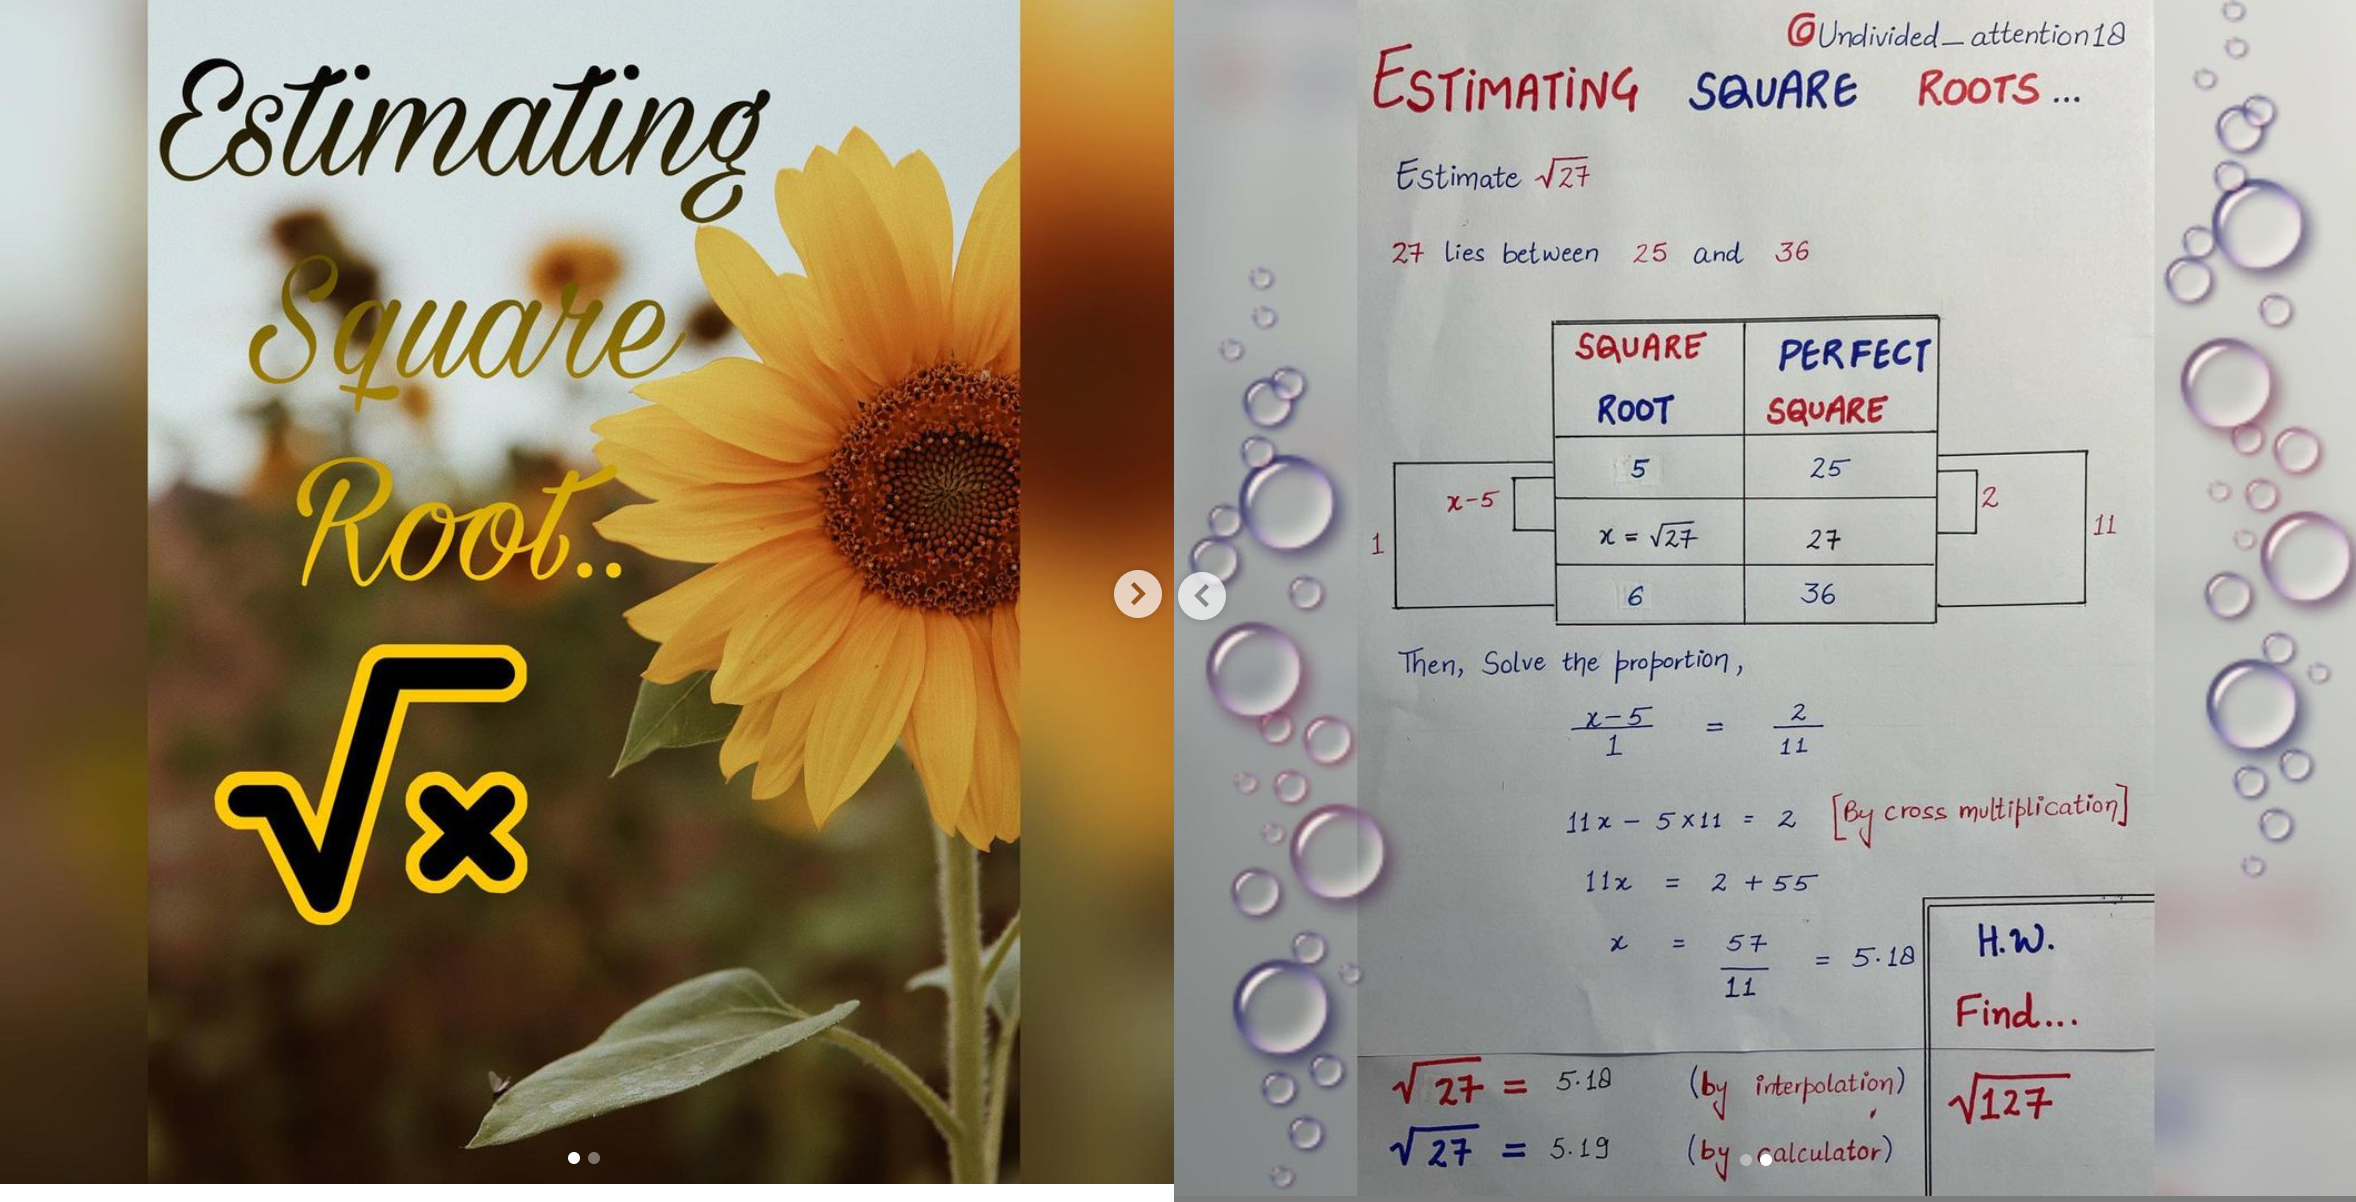 Estimating
Square
Root..
√x
@Undivided_attention18
ESTIMATING SQUARE ROOTS...
Estimate √27
27 lies between 25 and 36
SQUARE ROOT PERFECT SQUARE
5 25
x-5 2
1 x = √27 27 11
6 36
Then, Solve the proportion,
x-5 / 1 = 2 / 11
11x - 5×11 = 2 [By cross multiplication]
11x = 2 + 55
x = 57 / 11 = 5.18
√27 = 5.18 (by interpolation)
√27 = 5.19 (by calculator)
H.W.
Find...
√127